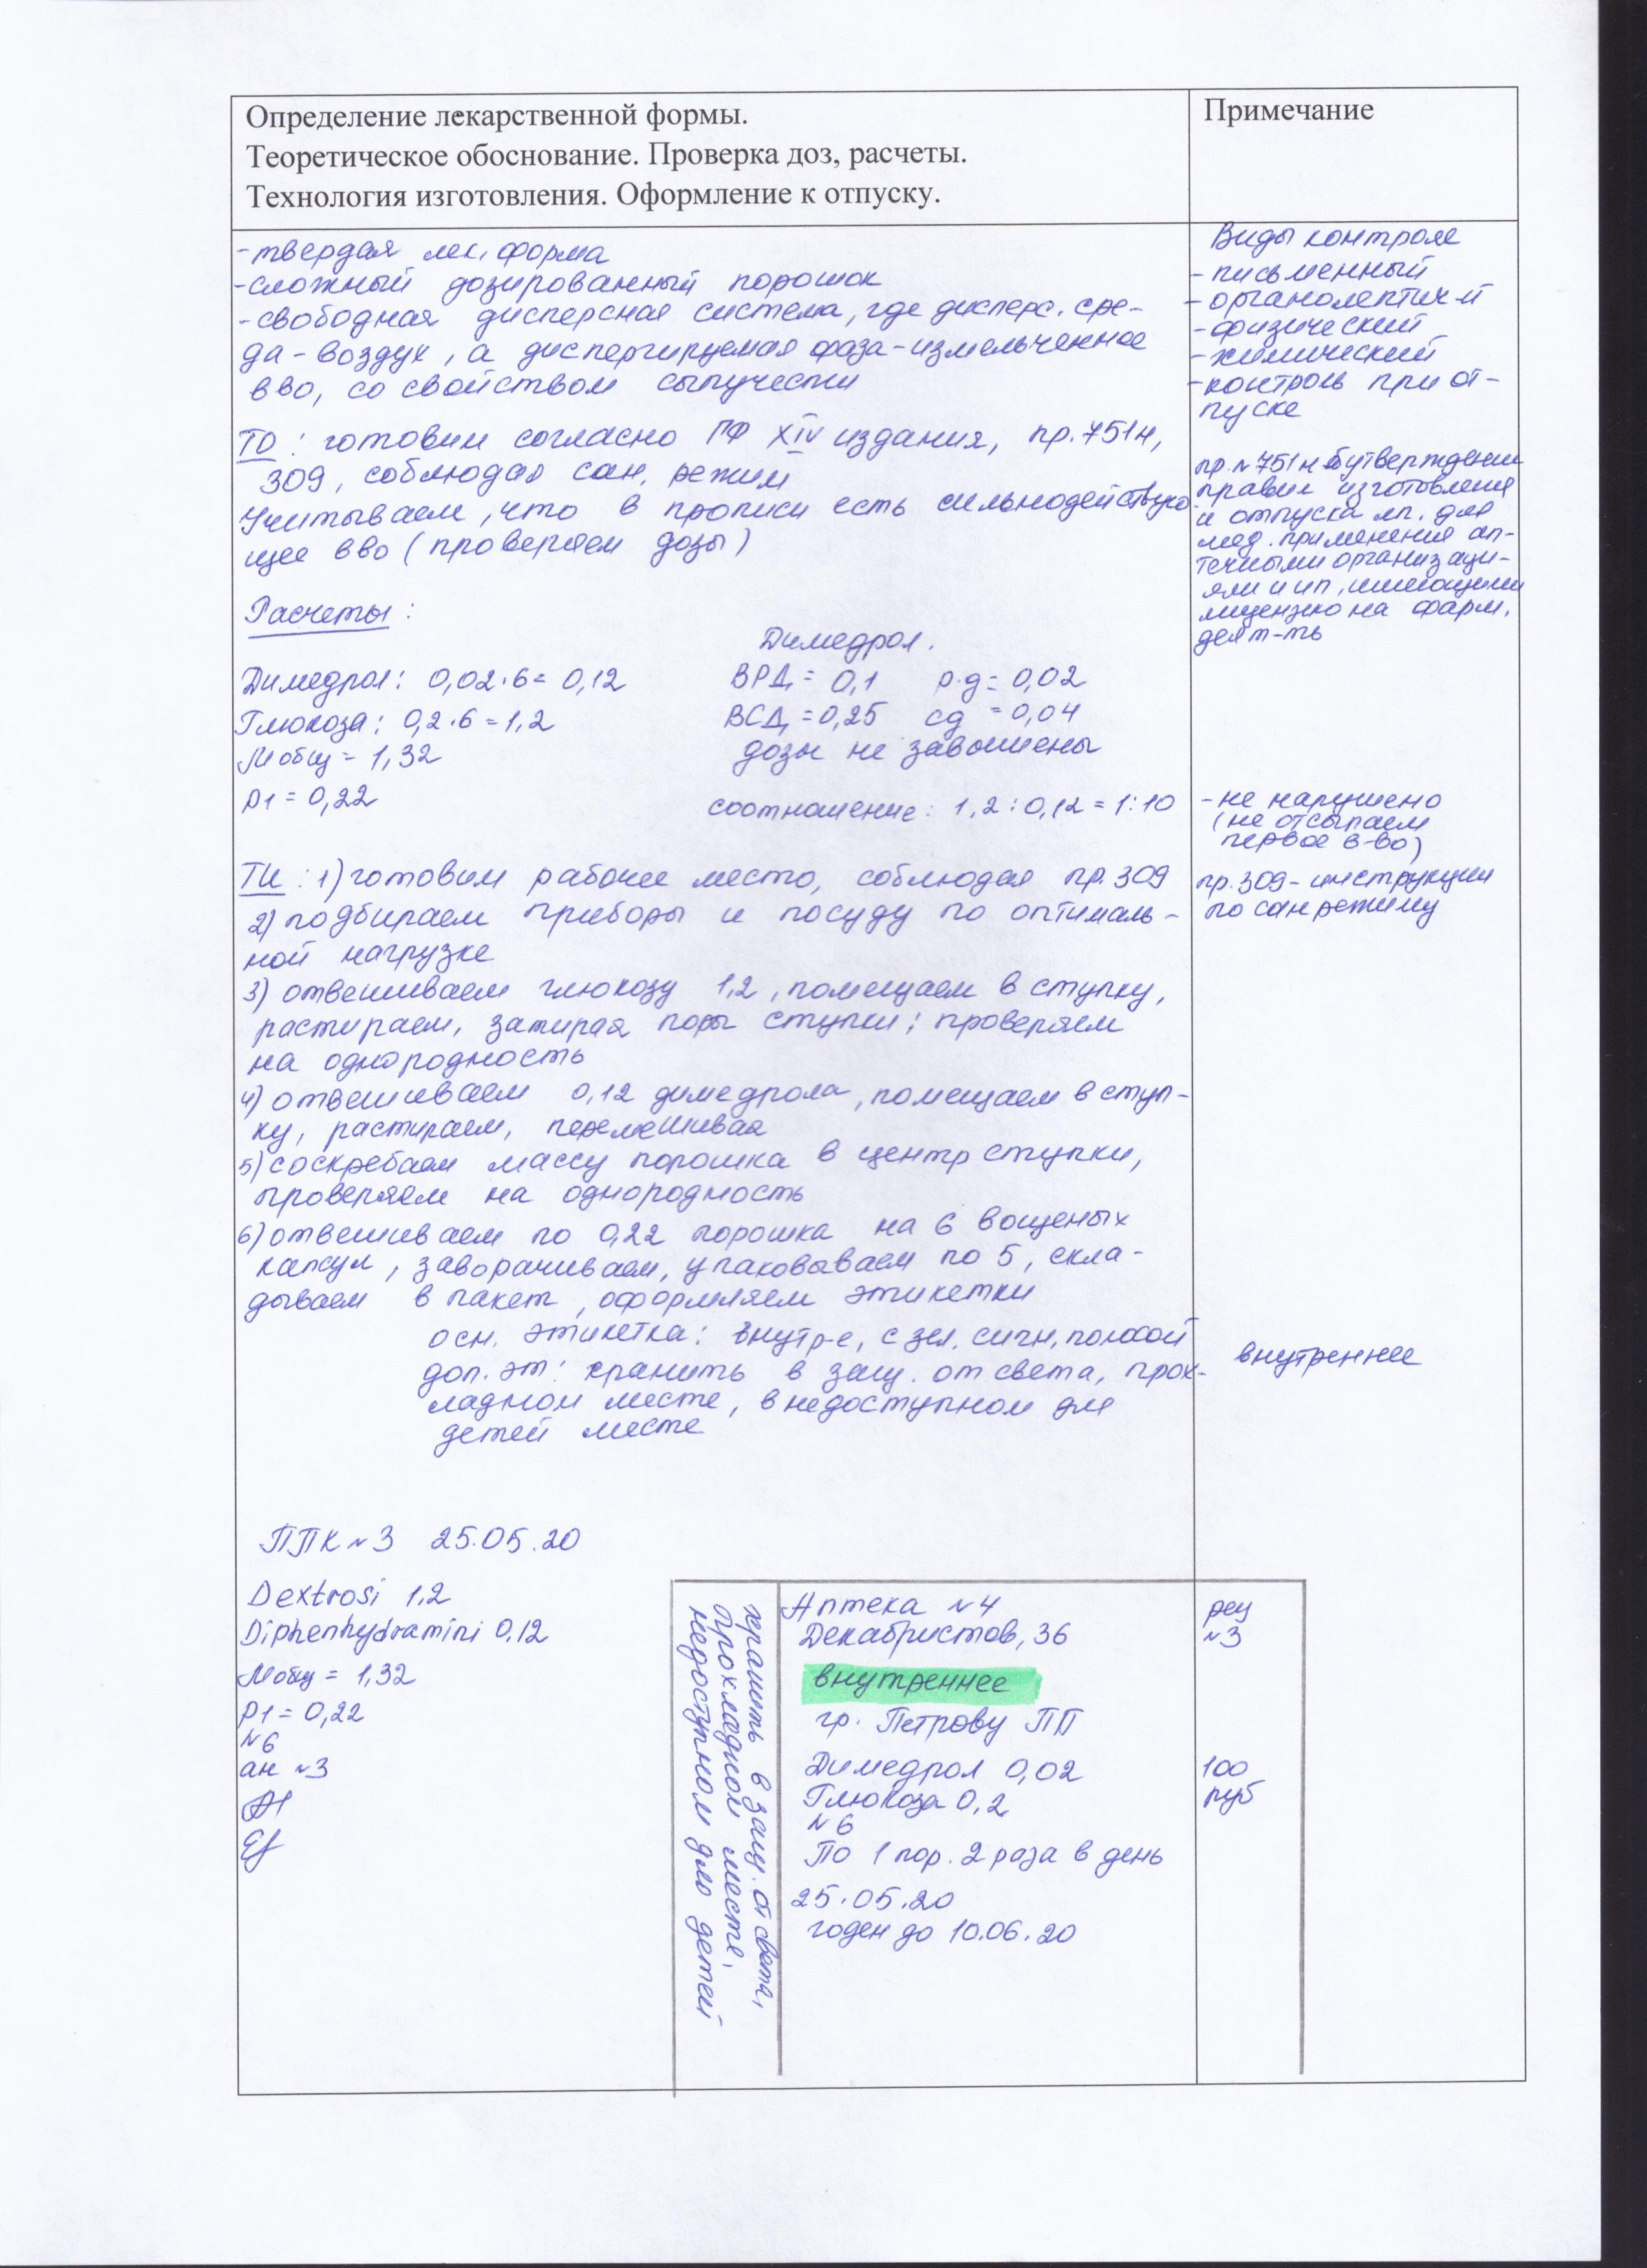 Определение лекарственной формы.
Теоретическое обоснование. Проверка доз, расчеты.
Технология изготовления. Оформление к отпуску.
Примечание
-твердая лек. форма
-сложный дозированный порошок
-свободная дисперсная система, где дисперс. сре-
да-воздух, а диспергируемая фаза-измельченное
вво, со свойством сыпучести
ТО: готовим согласно ГФ XIV издания, пр. 751н,
309, соблюдая сан. режим
Учитываем, что в прописи есть сильнодействую
щее вво (проверяем дозы)
Расчеты:
Димедрол: 0,02·6= 0,12
Глюкоза: 0,2·6=1,2
Mобщ = 1,32
p1 = 0,22
Димедрол.
ВРД = 0,1 р.д = 0,02
ВСД =0,25 сд =0,04
дозы не завышены
соотношение: 1,2:0,12 = 1:10
ТИ: 1) готовим рабочее место, соблюдая пр. 309
2) подбираем приборы и посуду по оптималь-
ной нагрузке
3) отвешиваем глюкозу 1,2, помещаем в ступку,
растираем, затирая поры ступки; проверяем
на однородность
4) отвешиваем 0,12 димедрола, помещаем в ступ-
ку, растираем, перемешивая
5) соскребаем массу порошка в центр ступки,
проверяем на однородность
6) отвешиваем по 0,22 порошка на 6 вощеных
капсул, заворачиваем, упаковываем по 5, скла-
дываем в пакет, оформляем этикетки
осн. этикетка: внутр-е, с зел. сигн. полосой
доп. эт: хранить в защ. от света, прох-
ладном месте, в недоступном для
детей месте
Виды контроля
- письменный
- органолептич-й
- физический
- химический
- контроль при от-
пуске
пр. №751н утверждении
правил изготовления
и отпуска лп. для
мед. применения ап-
течными организаци-
ями и ип, имеющими
лицензию на фарм.
деят-ть
- не нарушено
(не отсыпаем
первое в-во)
пр. 309- инструкции
по сан режиму
внутреннее
ППК №3 25.05.20
Dextrosi 1,2
Diphenhydramini 0,12
Mобщ = 1,32
p1 = 0,22
№6
ан №3
хранить в защ. от света,
прохладном месте,
недоступном для детей
Аптека №4
Декабристов, 36
внутреннее
гр. Петрову ПП
Димедрол 0,02
Глюкоза 0,2
№6
По 1 пор. 2 раза в день
25.05.20
годен до 10.06.20
рец
№3
100
руб